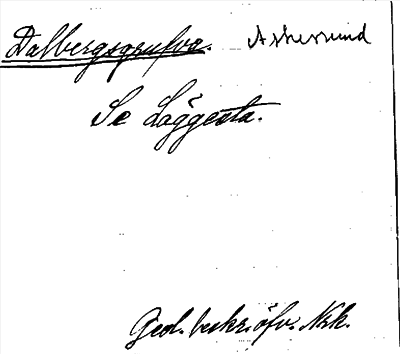 Dalbergsgrufva. Askersund
Se Läggesta.
Geol. beskr. öfv. Nrk.